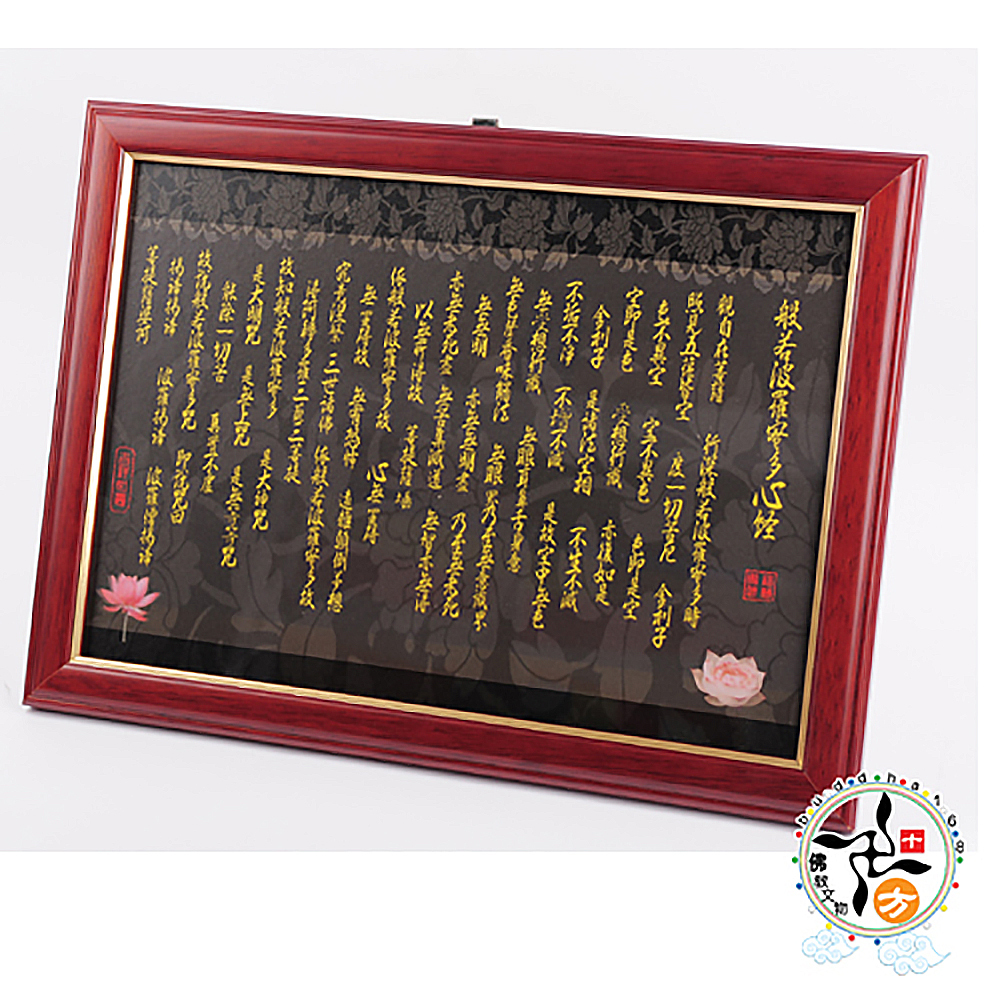 般若波羅蜜多心經
觀自在菩薩 行深般若波羅蜜多時
照見五蘊皆空 度一切苦厄 舍利子
色不異空 空不異色 色即是空
空即是色 受想行識 亦復如是
舍利子 是諸法空相 不生不滅
不垢不淨 不增不減 是故空中無色
無受想行識 無眼耳鼻舌身意
無色聲香味觸法 無眼界乃至無意識界
無無明 亦無無明盡 乃至無老死
亦無老死盡 無苦集滅道 無智亦無得
以無所得故 菩提薩埵
依般若波羅蜜多故 心無罣礙
無罣礙故 無有恐怖 遠離顛倒夢想
究竟涅槃 三世諸佛 依般若波羅蜜多故
得阿耨多羅三藐三菩提
故知般若波羅蜜多 是大神咒
是大明咒 是無上咒 是無等等咒
能除一切苦 真實不虛
故說般若波羅蜜多咒 即說咒曰
揭諦揭諦 波羅揭諦 波羅僧揭諦
菩提薩婆訶
buddha
佛教文物
十
方